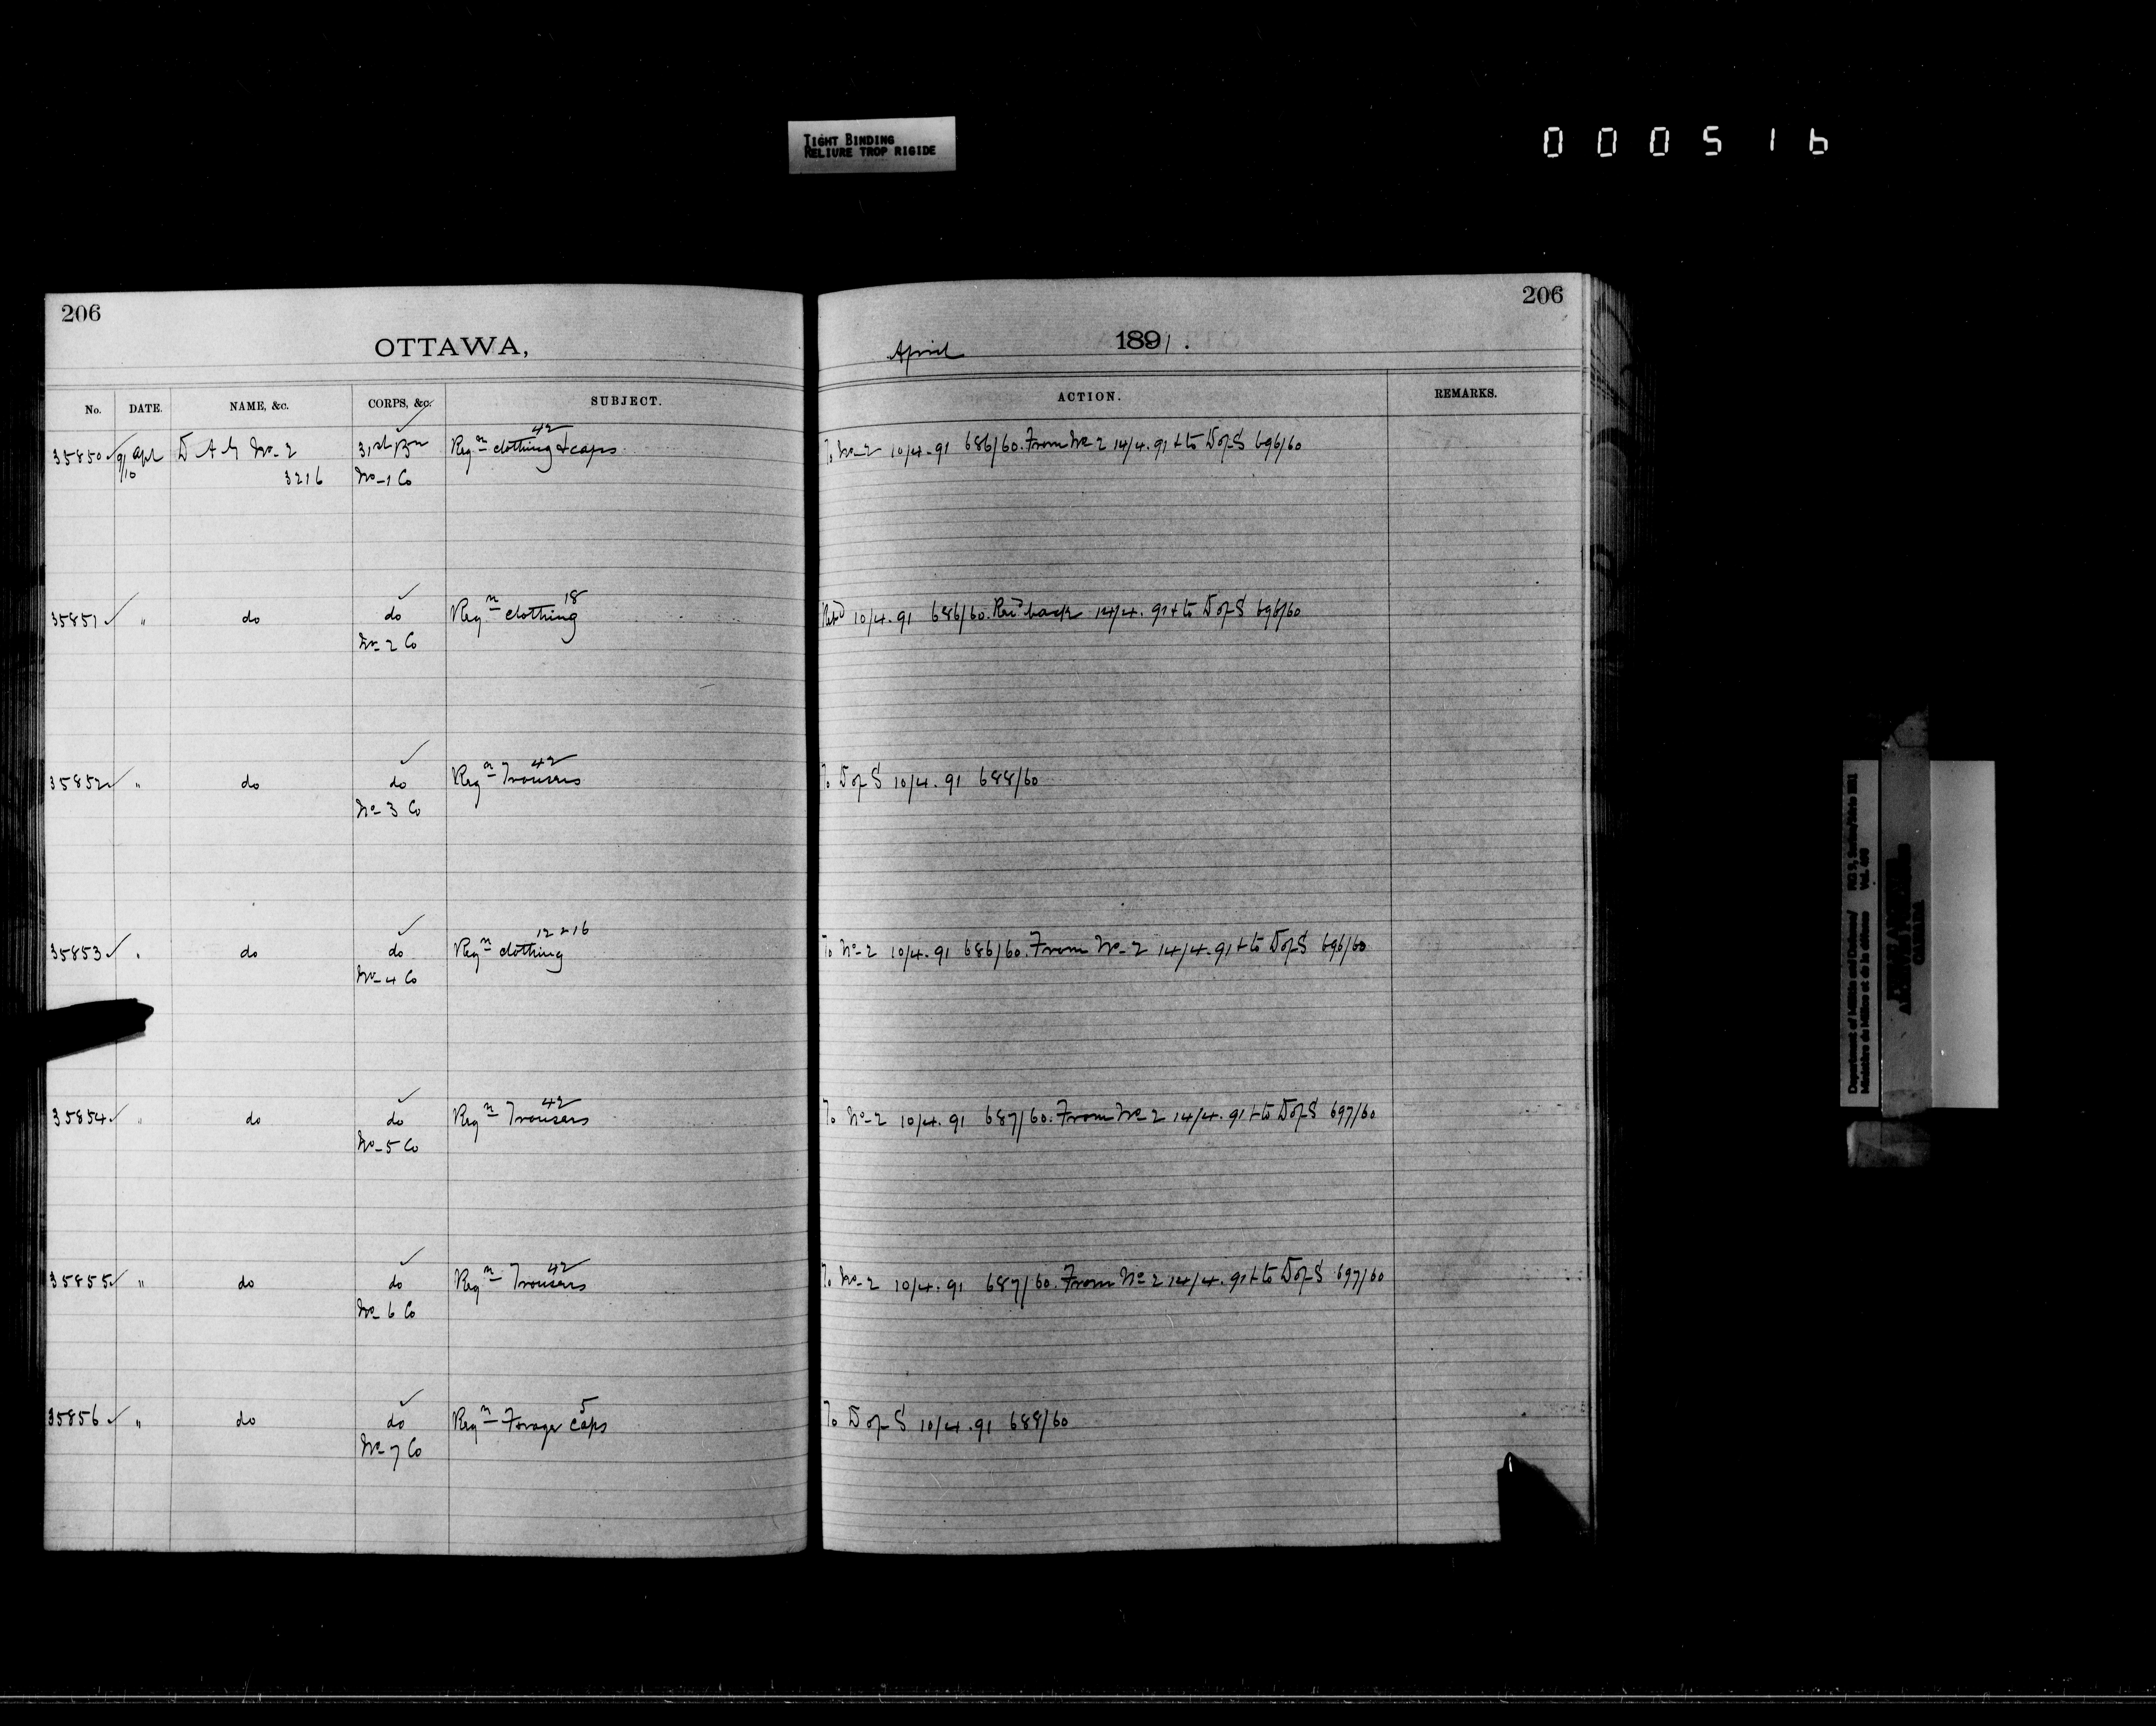 TIGHT BINDING
RELIURE TROP RIGIDE
000516
206
OTTAWA,
No. DATE. NAME, &c. CORPS, &c. SUBJECT.
42
35850 ✓ 9/10 Apl D A G No. 2 31st Bn Reqn clothing & caps
3216 No. 1 Co
18
35851 ✓ " do do Reqn clothing
No. 2 Co
42
35852 ✓ " do do Reqn Trousers
No. 3 Co
12 & 16
35853 ✓ " do do Reqn clothing
No. 4 Co
42
35854 ✓ " do do Reqn Trousers
No. 5 Co
42
35855 ✓ " do do Reqn Trousers
No. 6 Co
5
35856 ✓ " do do Reqn Forage Caps
No. 7 Co
206
April 1891.
ACTION. REMARKS.
To No. 2 10/4.91 686/60. From No. 2 14/4.91 & to D of S 696/60
Retd 10/4.91 686/60. Recd back 14/4.91 & to D of S 696/60
To D of S 10/4.91 688/60
To No. 2 10/4.91 686/60. From No. 2 14/4.91 & to D of S 696/60
To No. 2 10/4.91 687/60. From No. 2 14/4.91 & to D of S 697/60
To No. 2 10/4.91 687/60. From No. 2 14/4.91 & to D of S 697/60
To D of S 10/4.91 688/60
Department of Militia and Defence/
Ministère de la Milice et de la défense